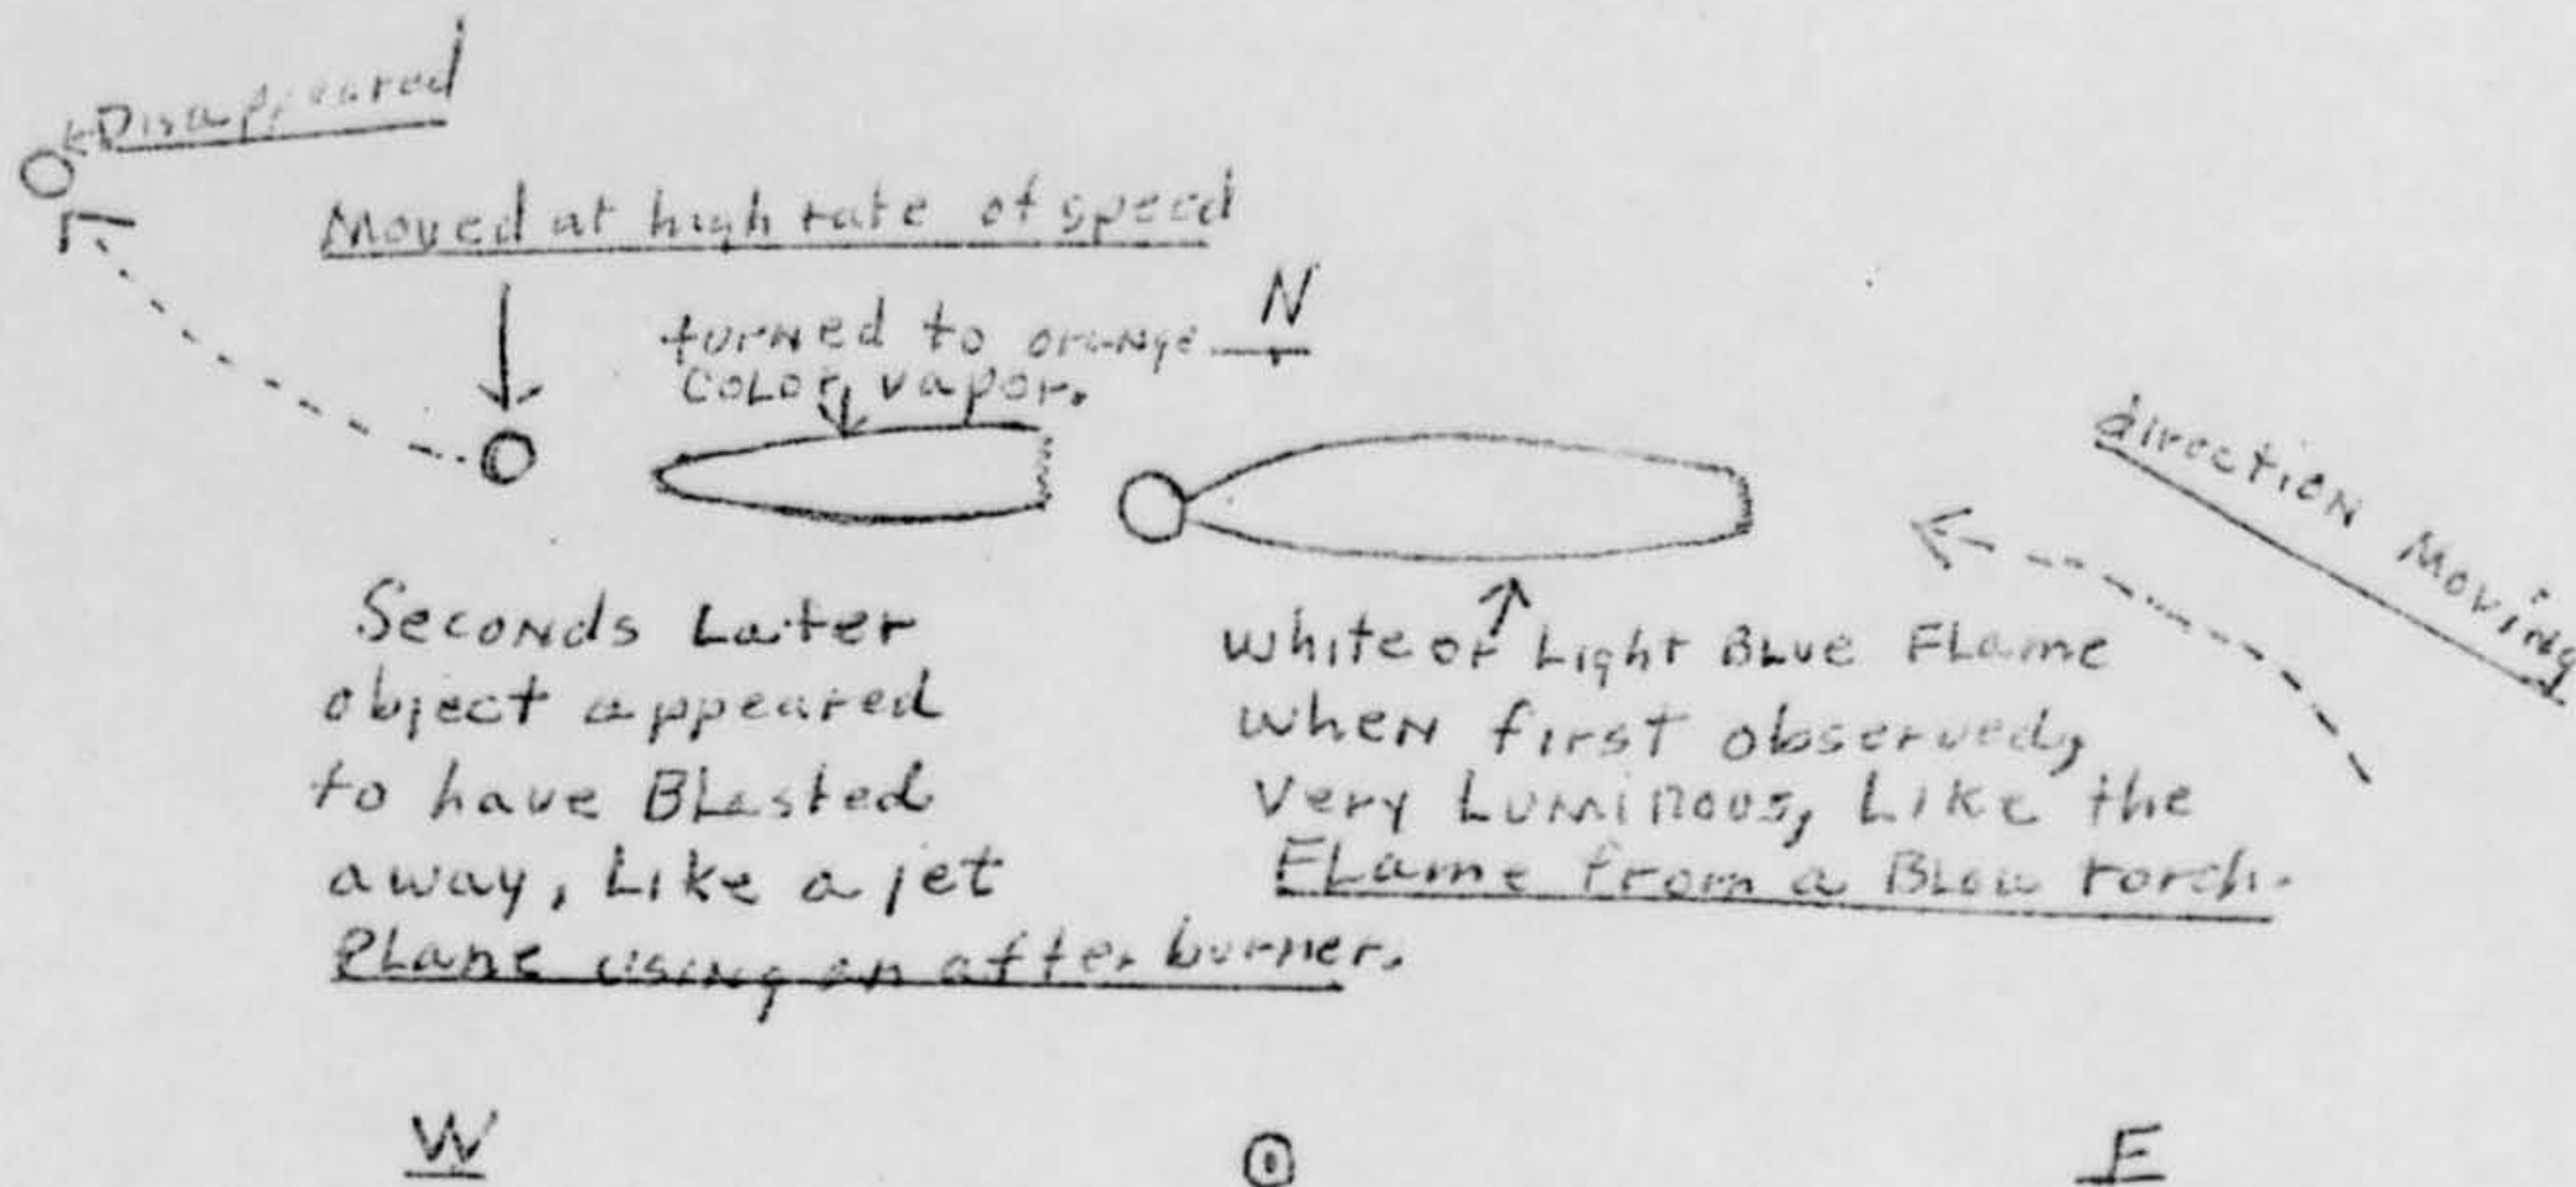 Disappeared
Moved at high rate of speed
N
turned to orange
color vapor.
direction Moving
Seconds Later
object appeared
to have Blasted
away, Like a jet
Plane using an after burner.
white or Light Blue Flame
when first observed,
very Luminous, Like the
Flame from a Blow torch.
W
E